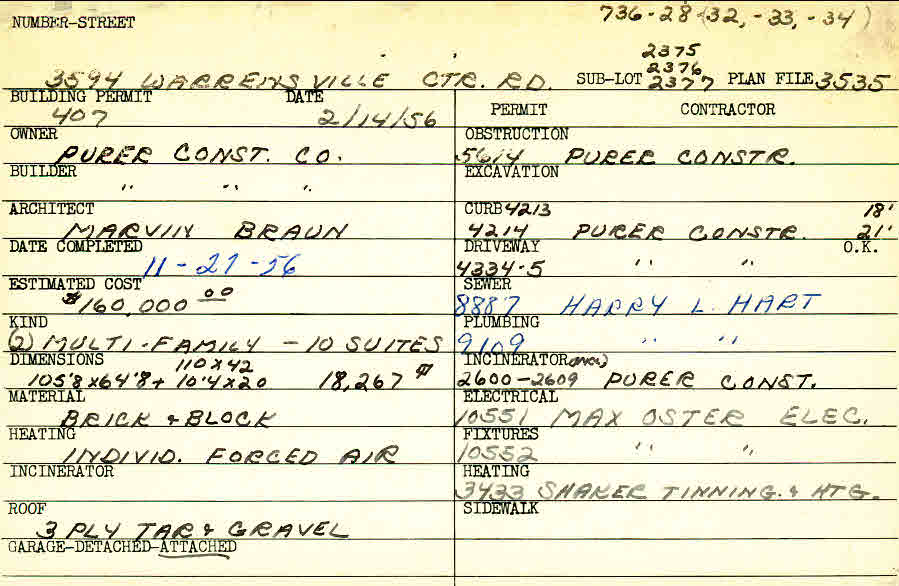 NUMBER-STREET 736-28 (32, -33, -34)
2375
2376
3594 WARRENSVILLE CTR. RD. SUB-LOT 2377 PLAN FILE 3535
BUILDING PERMIT DATE
407 2/14/56
OWNER
PURER CONST. CO.
BUILDER
" " "
ARCHITECT
MARVIN BRAUN
DATE COMPLETED
11-27-56
ESTIMATED COST
$160,000 00
KIND
(2) MULTI-FAMILY - 10 SUITES
DIMENSIONS 110 X 42
105'8 X 64'8 + 10'4 X 20 18,267
MATERIAL
BRICK & BLOCK
HEATING
INDIVID. FORCED AIR
INCINERATOR
ROOF
3 PLY TAR & GRAVEL
GARAGE-DETACHED-ATTACHED
PERMIT CONTRACTOR
OBSTRUCTION
5614 PURER CONSTR.
EXCAVATION
CURB 4213 18'
4214 PURER CONSTR. 21'
DRIVEWAY O.K.
4334-5 " "
SEWER
8887 HARRY L. HART
PLUMBING
9109 " "
INCINERATOR
2600-2609 PURER CONST.
ELECTRICAL
10551 MAX OSTER ELEC.
FIXTURES
10552 " "
HEATING
3433 SHAKER TINNING & HTG.
SIDEWALK